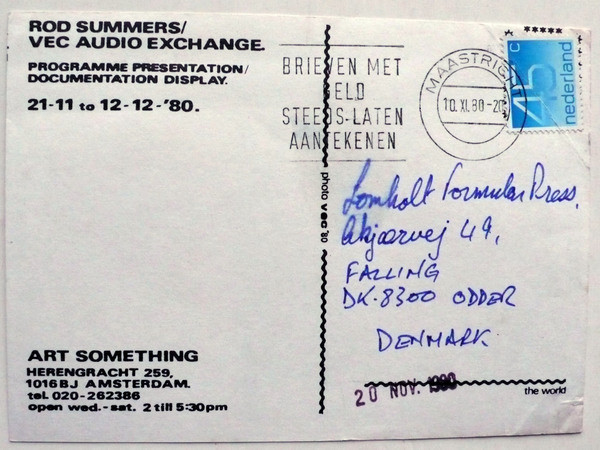 ROD SUMMERS/
VEC AUDIO EXCHANGE.
PROGRAMME PRESENTATION/
DOCUMENTATION DISPLAY.
21-11 to 12-12-'80.
ART SOMETHING
HERENGRACHT 259,
1016BJ AMSTERDAM.
tel. 020-262386
open wed.-sat. 2 till 5:30pm
photo vec '80
BRIEVEN MET
GELD
STEEDS-LATEN
AANTEKENEN
MAASTRICHT
10.XI.80-20
45 c
nederland
Lomholt Formular Press,
Akjærvej 49,
FALLING
DK-8300 ODDER
DENMARK
20 NOV. 1980
the world